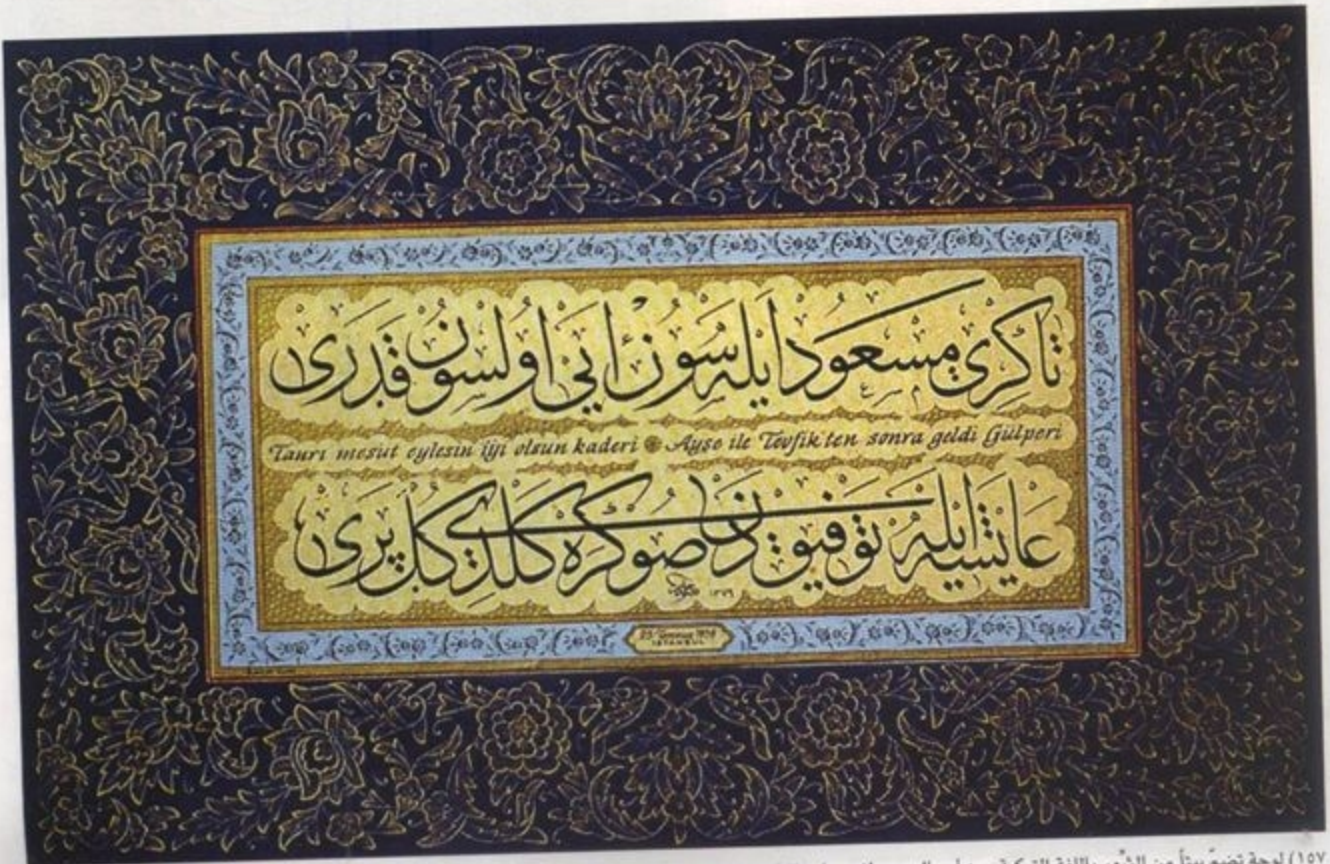 تاكری مسعود ایله‌سون ایی اولسون قدری
Tanrı mesut eylesin iyi olsun kaderi ❁ Ayşe ile Tevfik'ten sonra geldi Gülperi
عایشه ایله توفیق دن صوكره كلدی كل پری
١٣٧٩
ISTANBUL
١٥٧) لوحة تضم بيتاً من الشعر باللغة التركية